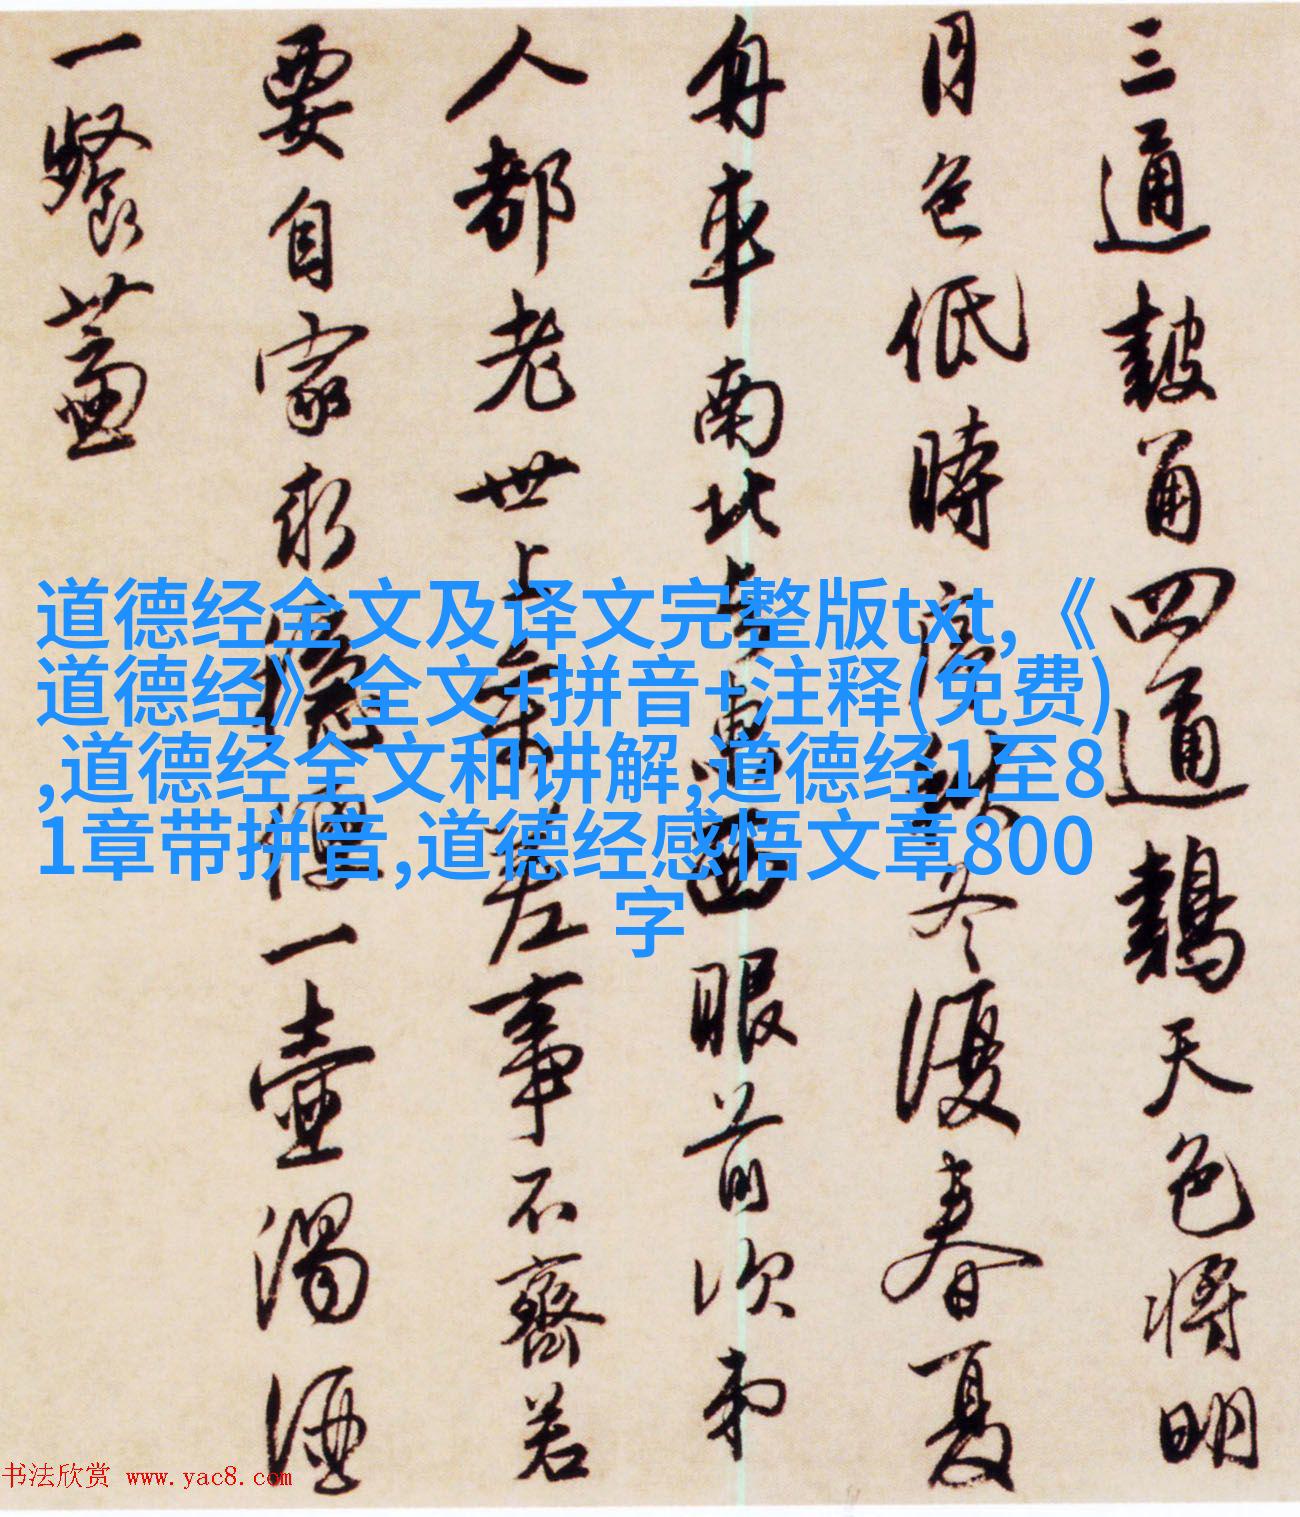 三通皷角四通鷄天色將明
月色低時序秋冬復春夏
舟車南北與東西眼前次第
人都老世上參差事不齊若
要自家求穩便一壺濁酒
一餐虀
道德经全文及译文完整版txt,《
道德经》全文+拼音+注释(免费)
,道德经全文和讲解,道德经1至8
1章带拼音,道德经感悟文章800
字
书法欣赏 www.yac8.com